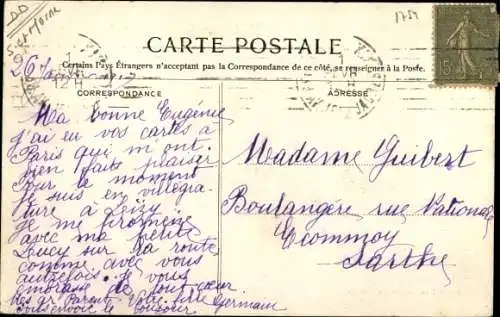 DD
S. et Marne
1759
CARTE POSTALE
Certains Pays Étrangers n'acceptant pas la Correspondance de ce côté, se renseigner à la Poste.
CORRESPONDANCE
ADRESSE
26
Ma bonne Eugénie
J'ai eu vos cartes à
Paris qui m'ont
bien faits plaisir
Pour le moment
Je suis en villegia
ture à
Je me promène
avec ma petite
Lucy sur la route
comme avec vous
autrefois. Je vous
embrasse de tout cœur
Vos gr. Parent
Germaine
Madame Guibert
Boulangère rue National
Ecommoy
Sarthe